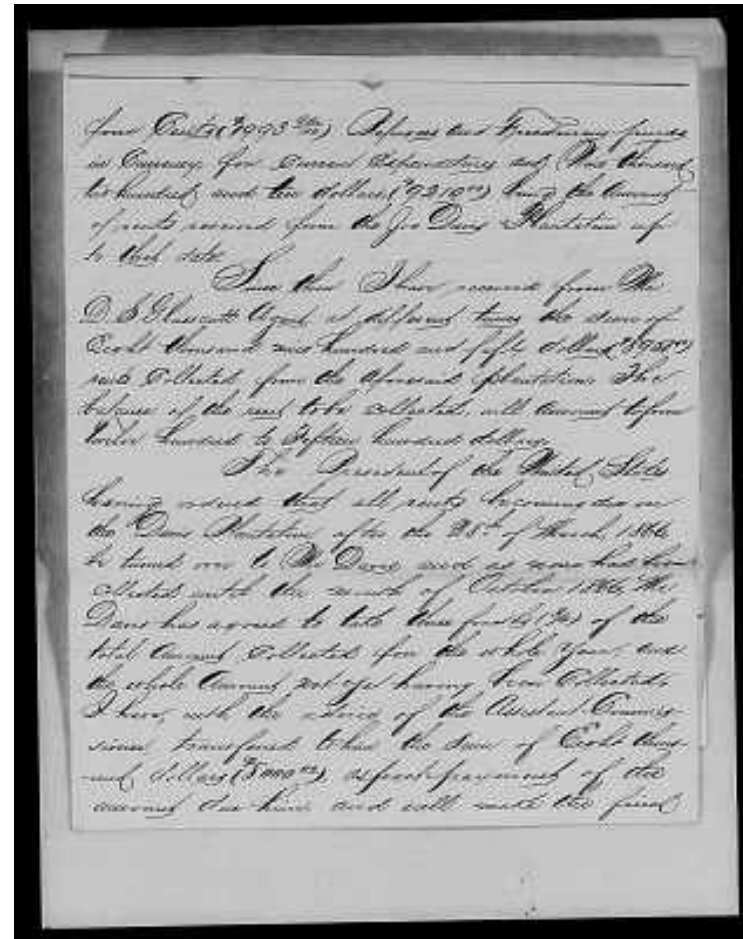 four Cents ($7993 04/100) Refugees and Freedmens funds
in Currency for Current Expenditures and Nine thousand
two hundred and ten dollars ($9210 00) being the Amount
of rents received from the Joe Davis Plantation up
to that date
Since then I have received from Mr
D. S. Glasscott Agent at different times the sum of
Eight thousand nine hundred and fifty dollars
rents Collected from the Aforesaid plantation The
balance of the rent to be collected, will Amount to from
twelve hundred to Fifteen hundred dollars.
The President of the United States
having ordered that all rents becoming due on
the Davis Plantation after the 28th of March 1866
be turned over to Mr Davis and as none has been
collected until the month of October 1866, Mr
Davis has agreed to take three fourths (3/4) of the
total Amount Collected for the whole Year, and
the whole Amount not yet having been Collected,
I have, with the advice of the Assistant Commis-
sioner transferred to him the Sum of Eight thous-
and dollars ($8000 00) as part payment of the
amount due him and will make the final